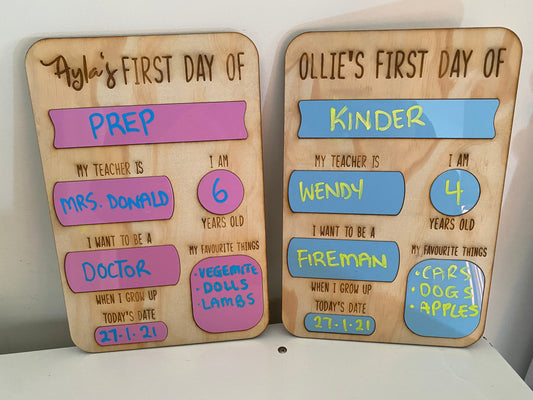 Ayla's FIRST DAY OF
PREP
MY TEACHER IS
MRS. DONALD
I AM
6
YEARS OLD
I WANT TO BE A
DOCTOR
WHEN I GROW UP
MY FAVOURITE THINGS
• VEGEMITE
• DOLLS
• LAMBS
TODAY'S DATE
27-1-21
OLLIE'S FIRST DAY OF
KINDER
MY TEACHER IS
WENDY
I AM
4
YEARS OLD
I WANT TO BE A
FIREMAN
WHEN I GROW UP
MY FAVOURITE THINGS
• CARS
• DOGS
• APPLES
TODAY'S DATE
27-1-21